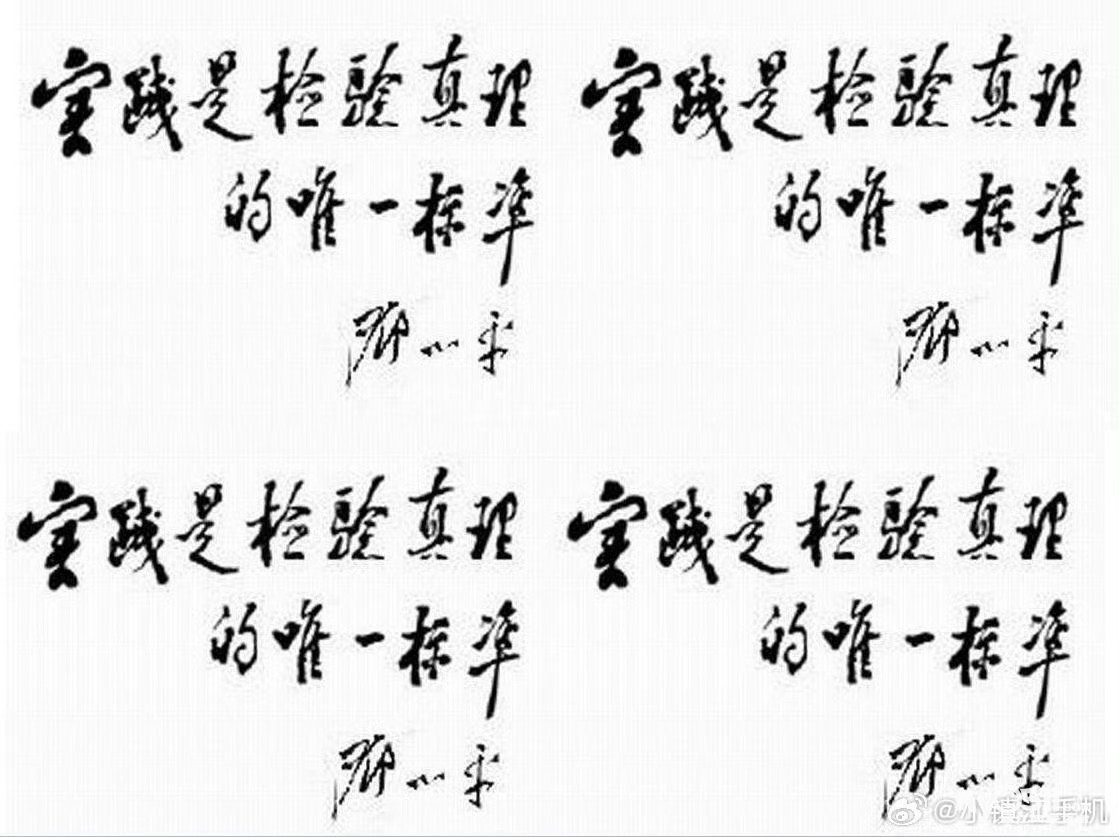 实践是检验真理
的唯一标准
邓小平
实践是检验真理
的唯一标准
邓小平
实践是检验真理
的唯一标准
邓小平
实践是检验真理
的唯一标准
邓小平